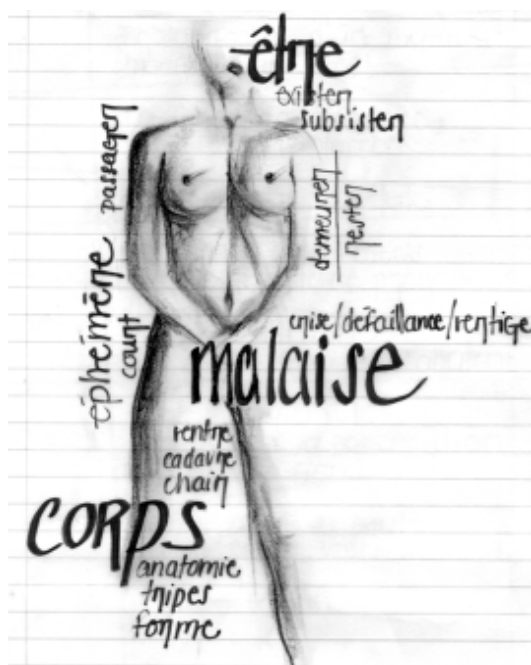 être
exister
subsister
passager
demeurer
rester
éphémère
court
crise/défaillance/vertige
malaise
ventre
cadavre
chair
CORPS
anatomie
tripes
forme